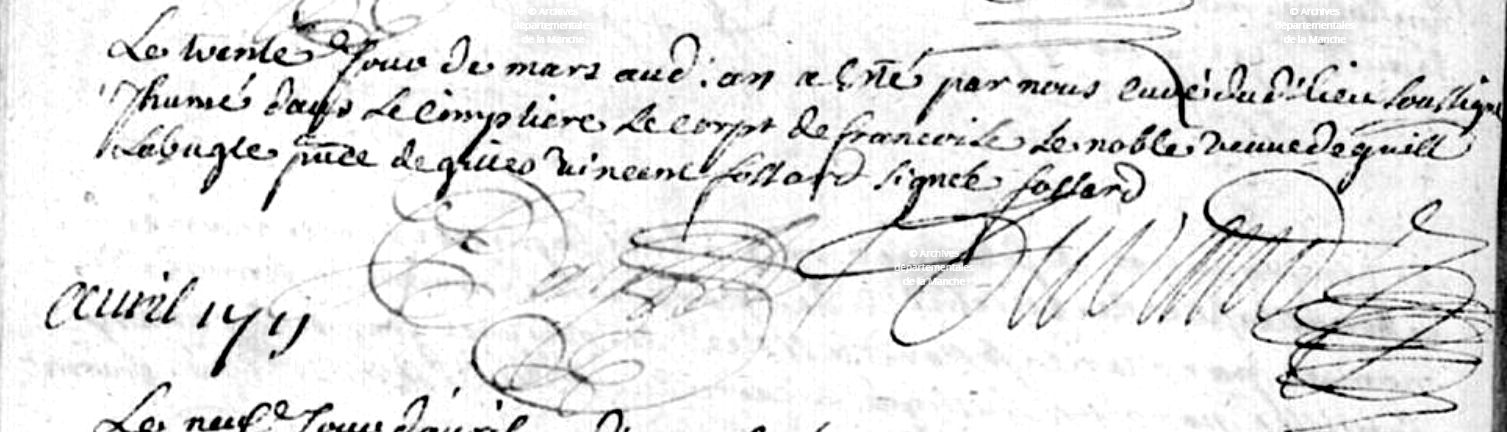 Le trente e Jour de mars aud: an a esté par nous curé dud: lieu soussigné
Jnhumé dans Le cimptiere Le corps de francoise Le noble veuve de guill
Labugle pnce de gilles vincent follard signé follard
avril 1711
Le neuf e Jour davril
© Archives
départementales
de la Manche
© Archives
départementales
de la Manche
© Archives
départementales
de la Manche